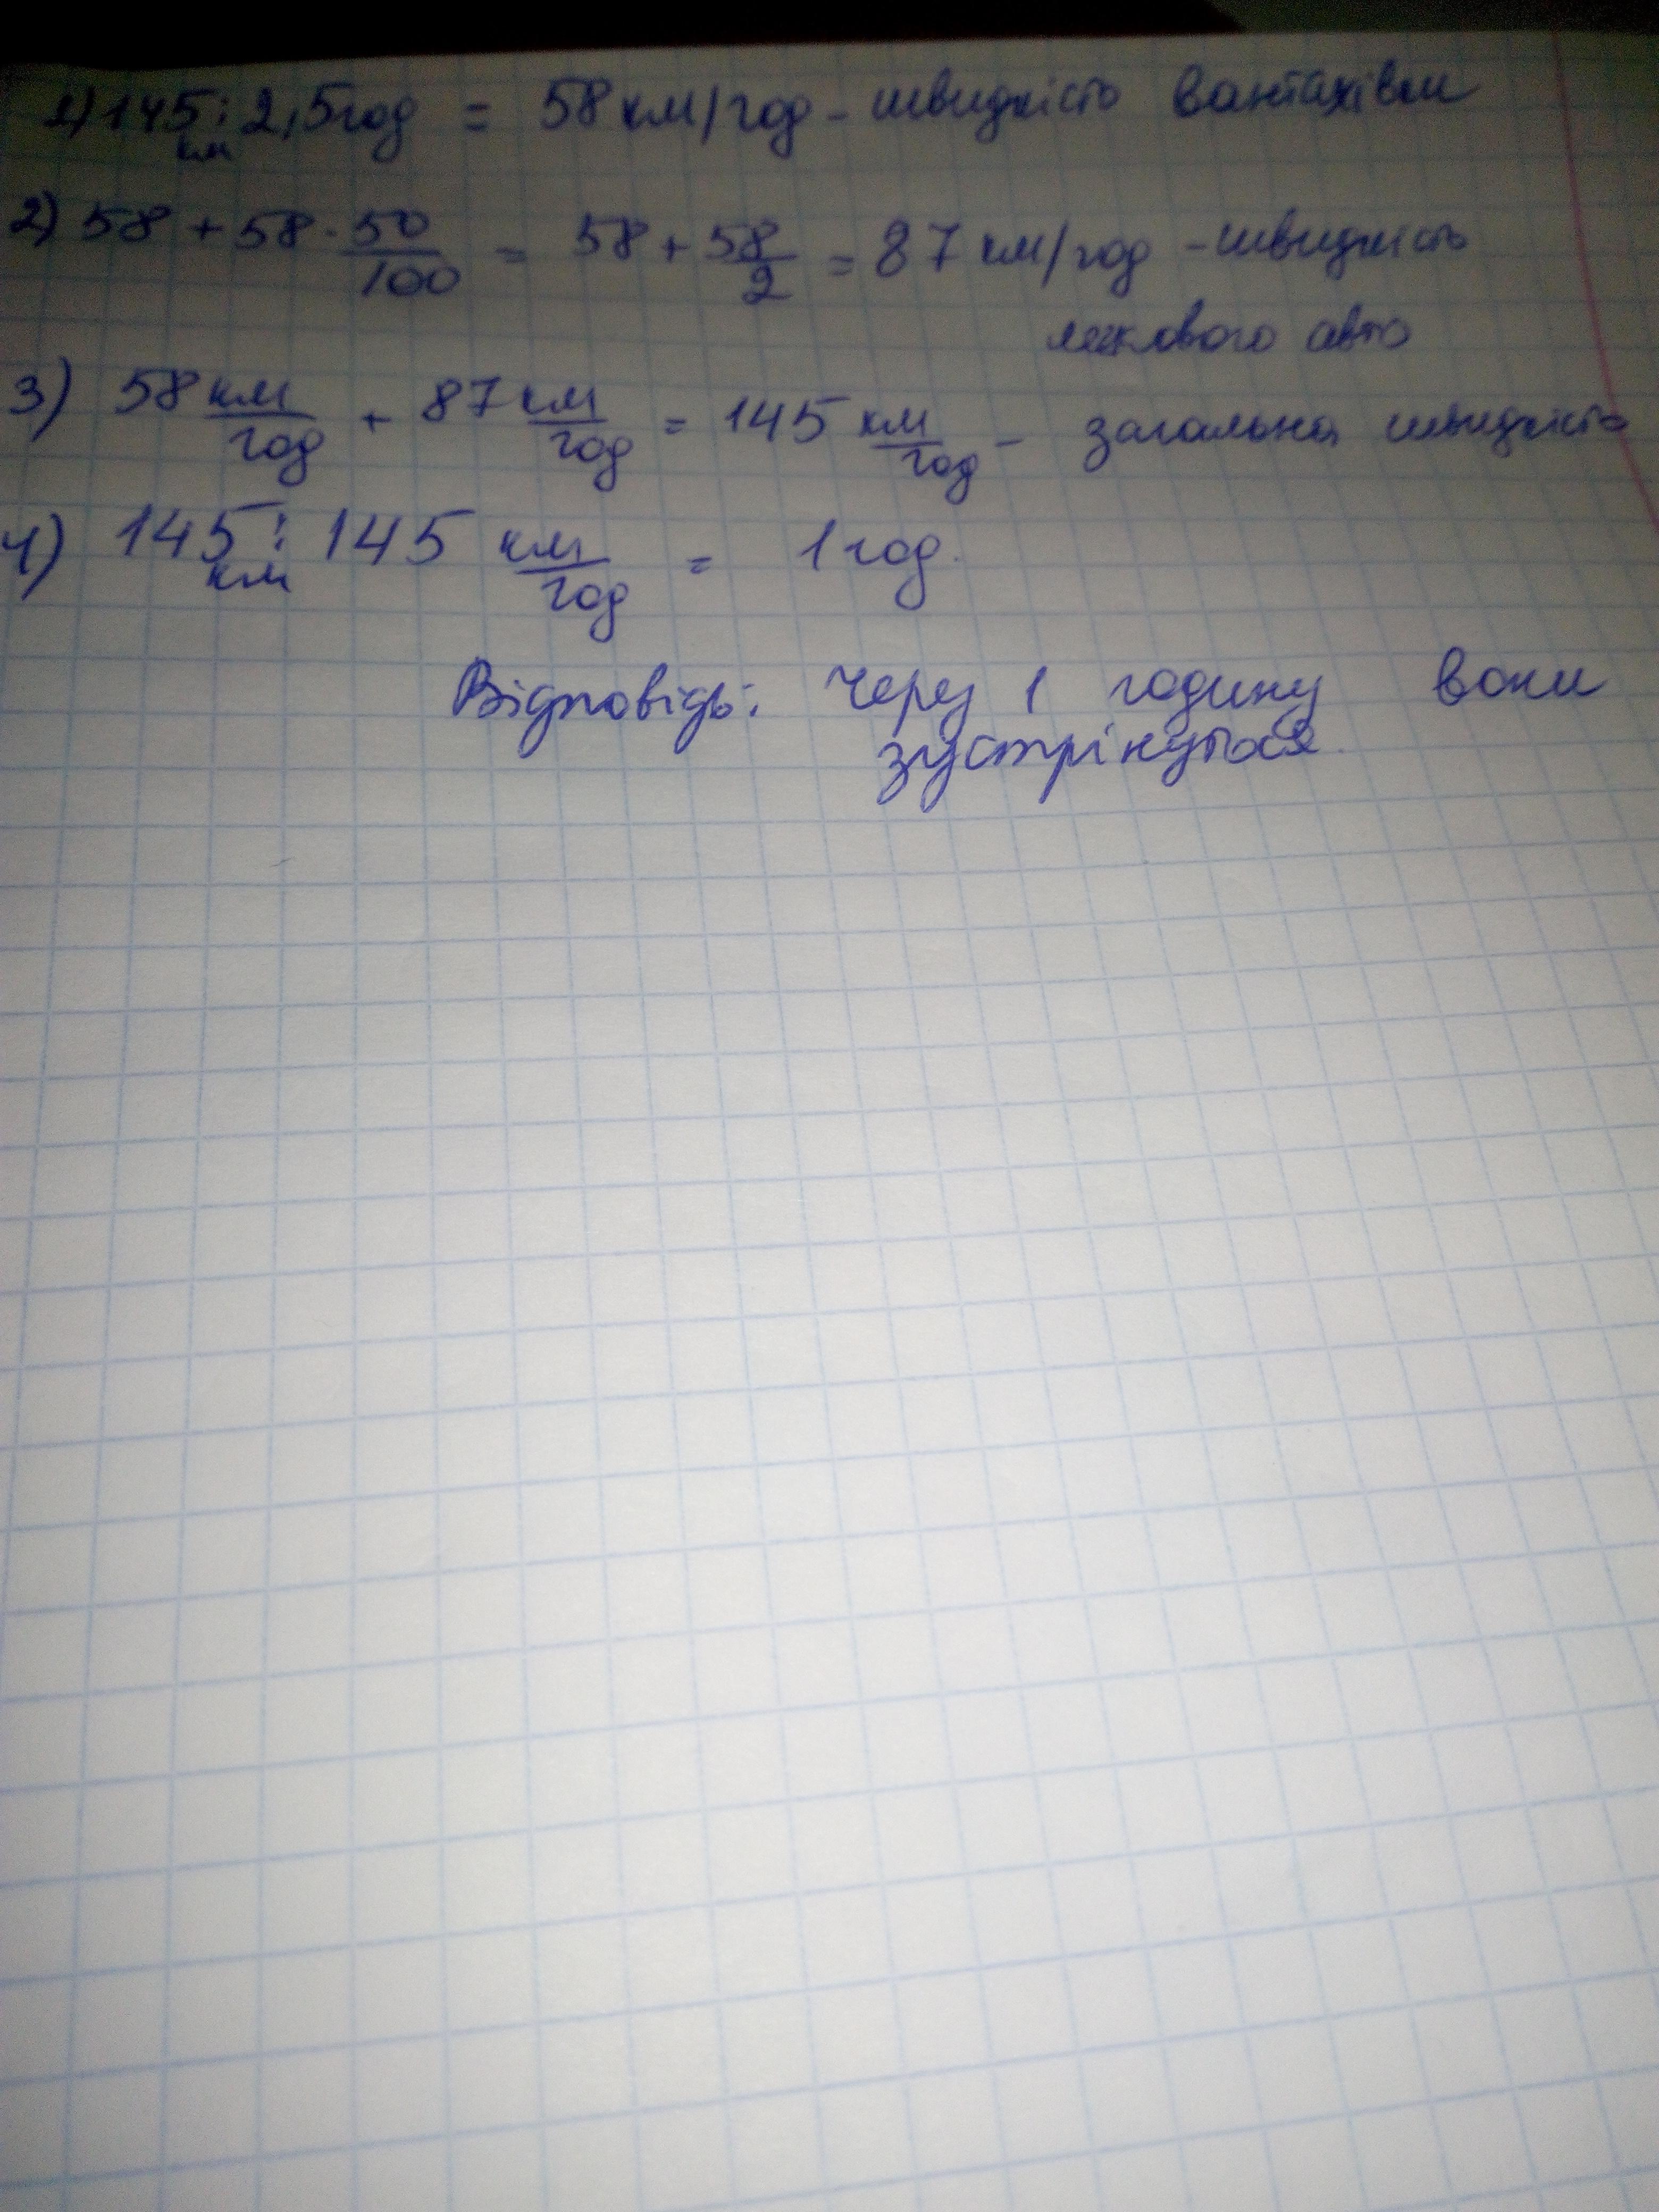 1) 145 км : 2,5 год = 58 км/год - швидкість вантахівки
2) 58 + 58 · 50/100 = 58 + 58/2 = 87 км/год - швидкість
легкового авто
3) 58 км/год + 87 км/год = 145 км/год - загальна швидкість
4) 145 км : 145 км/год = 1 год.
Відповідь: Через 1 годину вони
зустрінуться.